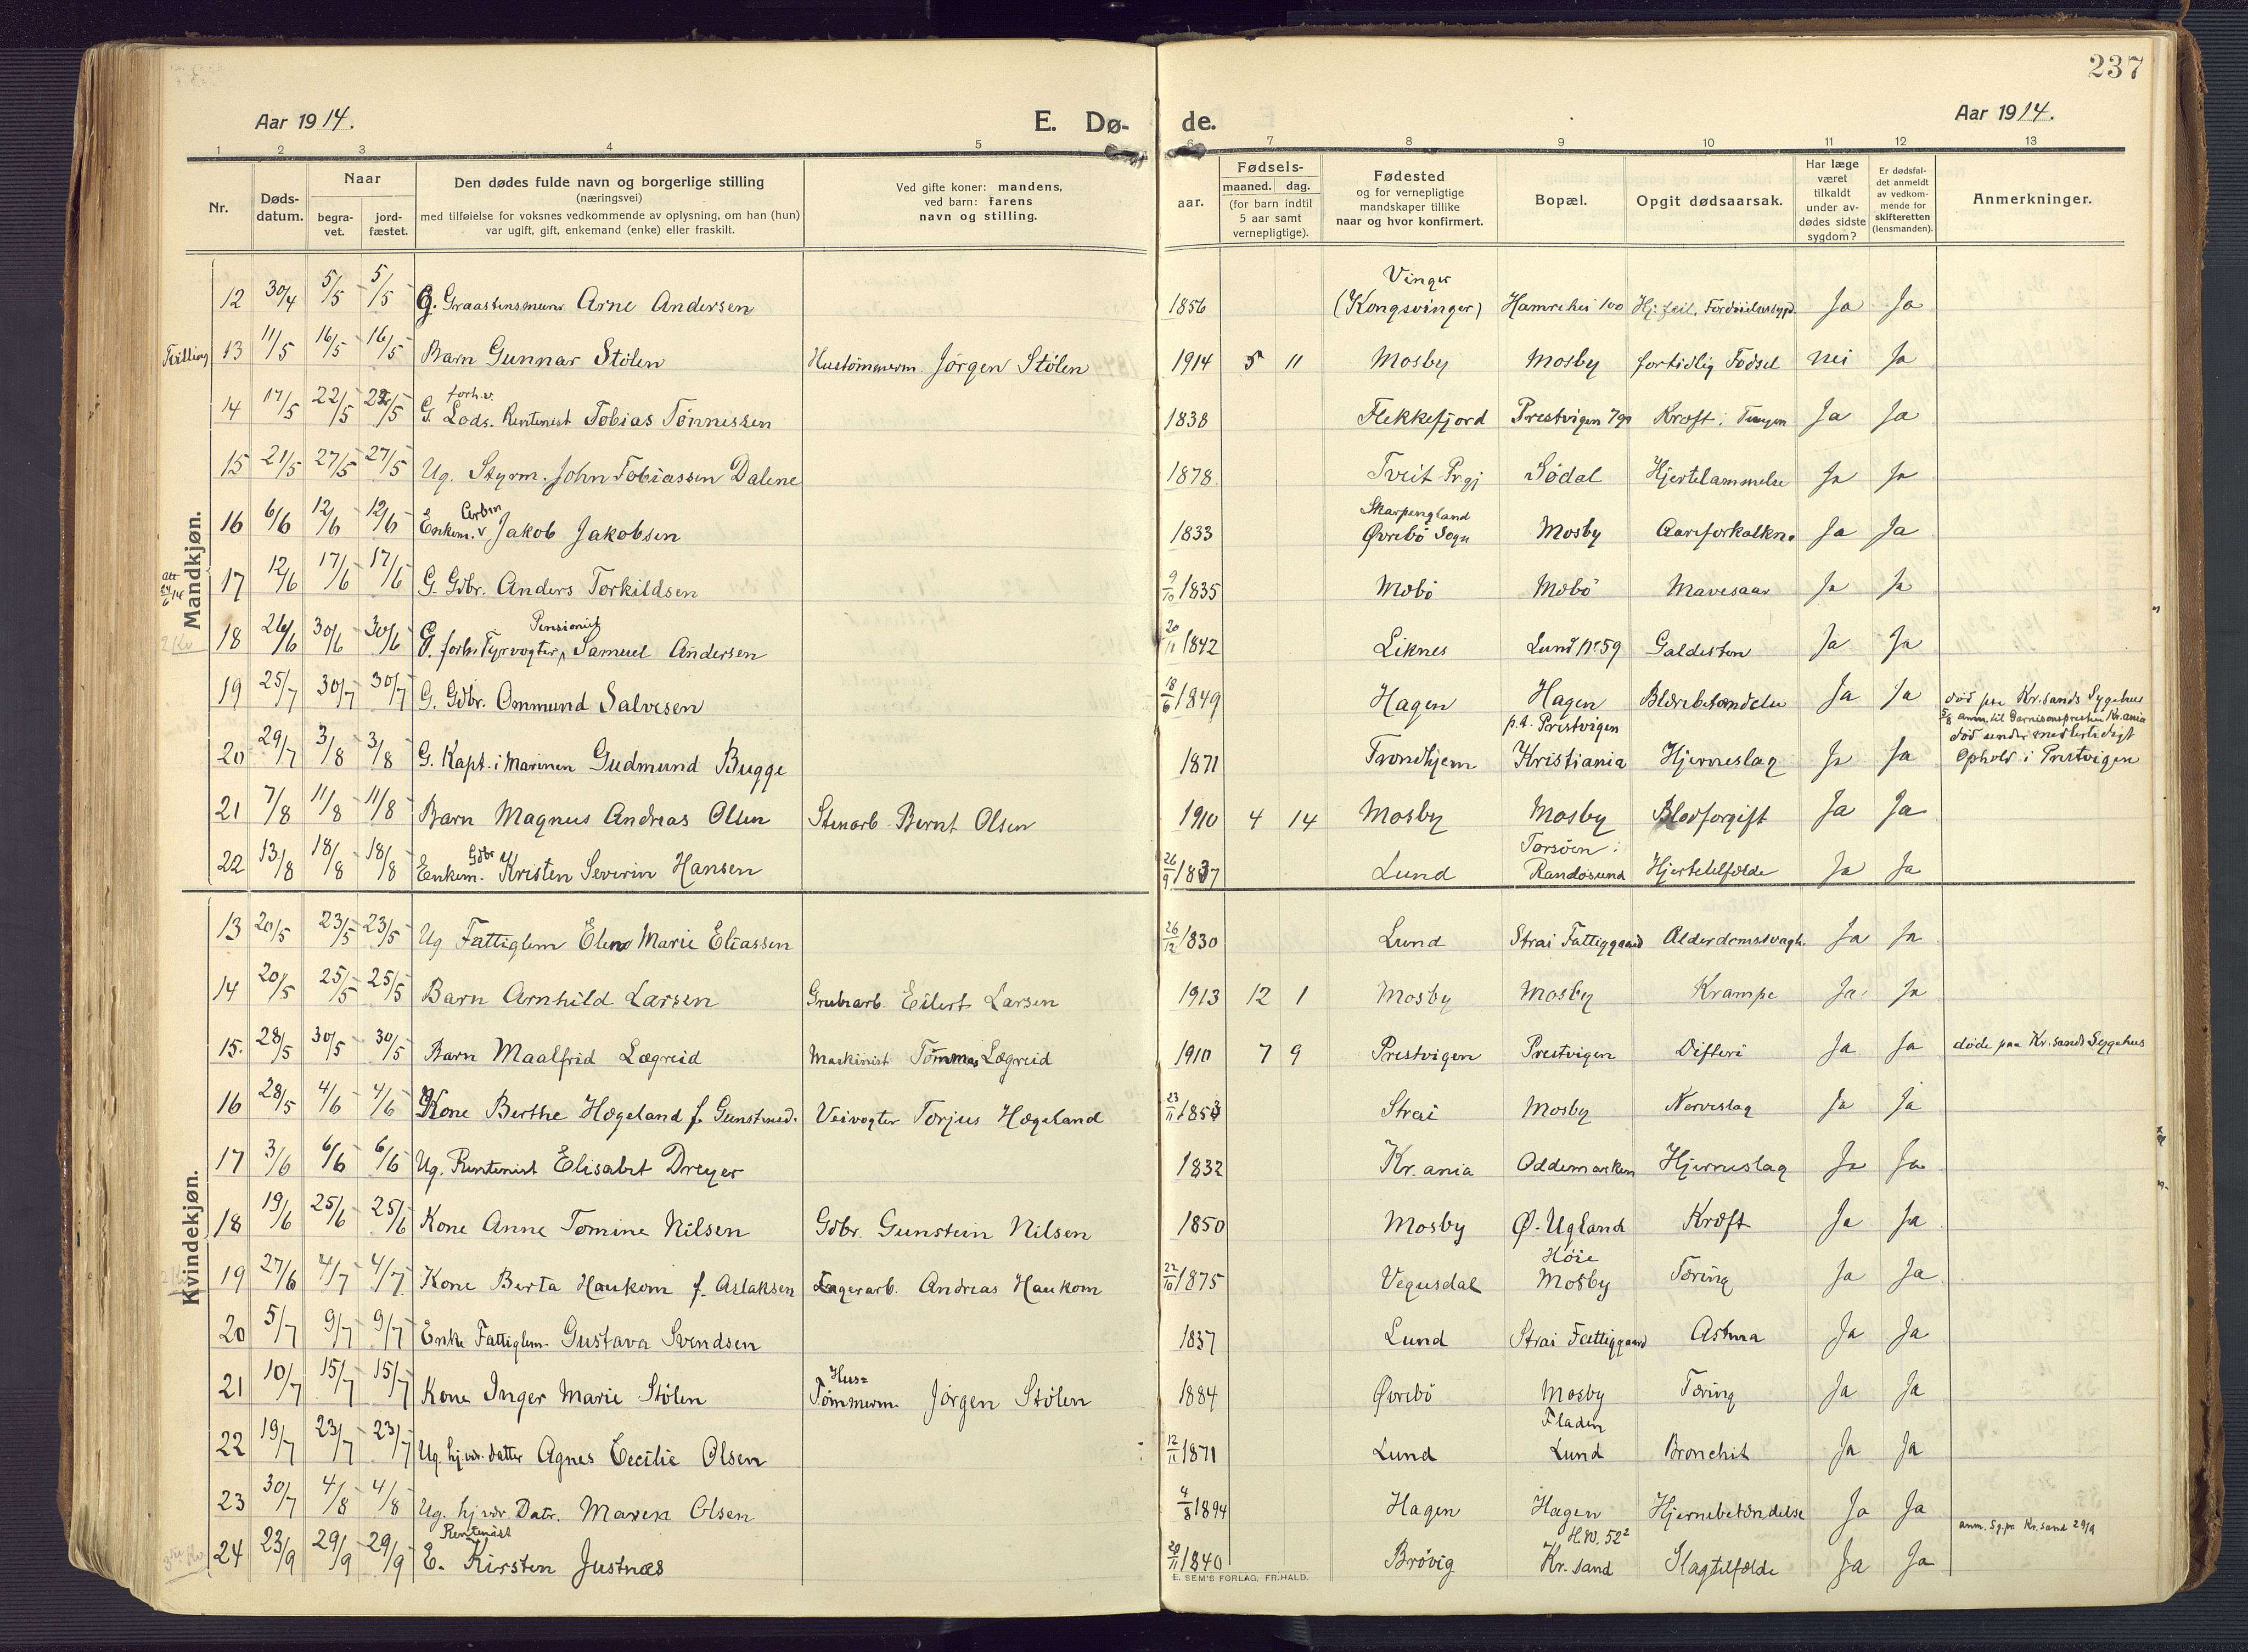 237
Aar 1914.
E. Dø-
de.
Aar 1914.
1 2 3 4 5 6 7 8 9 10 11 12 13
Nr.
Døds-
datum.
Naar
begra-
vet.
jord-
fæstet.
Den dødes fulde navn og borgerlige stilling
(næringsvei)
med tilføielse for voksnes vedkommende av oplysning, om han (hun)
var ugift, gift, enkemand (enke) eller fraskilt.
Ved gifte koner: mandens,
ved barn: farens
navn og stilling.
Fødsels-
aar.
maaned. dag.
(for barn indtil
5 aar samt
vernepligtige).
Fødested
og for vernepligtige
mandskaper tillike
naar og hvor konfirmert.
Bopæl.
Opgit dødsaarsak.
Har læge
været
tilkaldt
under av-
dødes sidste
sygdom?
Er dødsfal-
det anmeldt
av vedkom-
mende for
skifteretten
(lensmanden).
Anmerkninger.
Mandkjøn.
Vinger
12 30/4 5/5 5/5 G. Graastensmurer Arne Andersen 1856 (Kongsvinger) Hamrehei 100 Hj: feil, Ja Ja
Tvilling 13 11/5 16/5 16/5 Barn Gunnar Stølen Hustømmerm. Jørgen Stølen 1914 5 11 Mosby Mosby fortidlig Fødsel nei Ja
forh.v.
14 17/5 22/5 22/5 G. Lods. Rentenist Tobias Tønnessen 1838 Flekkefjord Prestvigen Kræft i Tungen Ja Ja
15 21/5 27/5 27/5 Ug. Styrm. John Tobiassen Dalene 1878 Tveit Prgj Sødal Hjertelammelse Ja Ja
Arbm Skarpengland
16 6/6 12/6 12/6 Enkem. v Jakob Jakobsen 1833 Øvrebø Sogn Mosby Aareforkalkn. Ja Ja
17 12/6 17/6 17/6 G. Gdbr. Anders Torkildsen 9/10 1835 Mæbø Mæbø Mavesaar Ja Ja
Pensionist
18 26/6 30/6 30/6 G. forh. Fyrvogter, Samuel Andersen 20/11 1842 Liknes Lund No 59 Galdesten Ja Ja
19 25/7 30/7 30/7 G. Gdbr. Ommund Salvesen 18/6 1849 Hagen Hagen Blærebetændelse Ja Ja død paa Kr.sands Sygehus
p.t. Prestvigen 5/8 anm. til Garnisonspresten Kr.ania
død under midlertidigt
20 29/7 3/8 3/8 G. Kapt. i Marinen Gudmund Bugge 1871 Trondhjem Kristiania Hjerneslag Ja Ja Ophold i Prestvigen
21 7/8 11/8 11/8 Barn Magnus Andreas Olsen Stenarb. Bernt Olsen 1910 4 14 Mosby Mosby Blodforgift Ja Ja
Gdbr Torsøen i
22 13/8 18/8 18/8 Enkem. Kristen Severin Hansen 26/9 1837 Lund Randøsund Hjertetilfælde Ja Ja
Kvindekjøn.
13 20/5 23/5 23/5 Ug Fattiglem Elen Marie Eliassen 26/12 1830 Lund Strai Fattiggaard Alderdomssvagh. Ja Ja
14 20/5 25/5 25/5 Barn Arnhild Larsen Grubearb. Eilert Larsen 1913 12 1 Mosby Mosby Krampe Ja Ja
15. 28/5 30/5 30/5 Barn Maalfrid Lægreid Maskinist Tommas Lægreid 1910 7 9 Prestvigen Prestvigen Difteri Ja Ja døde paa Kr.sands Sygehus
16 28/5 4/6 4/6 Kone Berthe Hægeland f. Gunstensd. Veivogter Torjus Hægeland 23/11 1853 Strai Mosby Nerveslag Ja Ja
17 3/6 6/6 6/6 Ug. Rentenist Elisabet Dreyer 1832 Kr.ania Oddemarken Hjerneslag Ja Ja
18 19/6 25/6 25/6 Kone Anne Tomine Nilsen Gdbr. Gunstein Nilsen 1850 Mosby Ø. Ugland Kræft Ja Ja
Høie
19 27/6 4/7 4/7 Kone Berta Haukom f. Aslaksen Lagerarb. Andreas Haukom 22/10 1875 Vegusdal Mosby Tæring Ja Ja
20 5/7 9/7 9/7 Enke Fattiglem. Gustava Svendsen 1837 Lund Strai Fattiggaard Astma Ja Ja
Hus=
21 10/7 15/7 15/7 Kone Inger Marie Stølen Tømmerm. Jørgen Stølen 1884 Øvrebø Mosby Tæring Ja Ja
Fladen
22 19/7 23/7 23/7 Ug. hj.vær. datter Agnes Cecilie Olsen 12/11 1871 Lund Lund Bronchit Ja Ja
23 30/7 4/8 4/8 Ug. hj.vær Datr. Maren Olsen 4/8 1894 Hagen Hagen Hjernebetændelse Ja Ja
Rentenist H.W. 52² anm. Sg.pr Kr.sand 29/9
24 23/9 29/9 29/9 E. Kirsten Justnæs 20/11 1840 Brøvig Kr.sand Slagtilfælde Ja Ja
E. SEM'S FORLAG, FR.HALD.